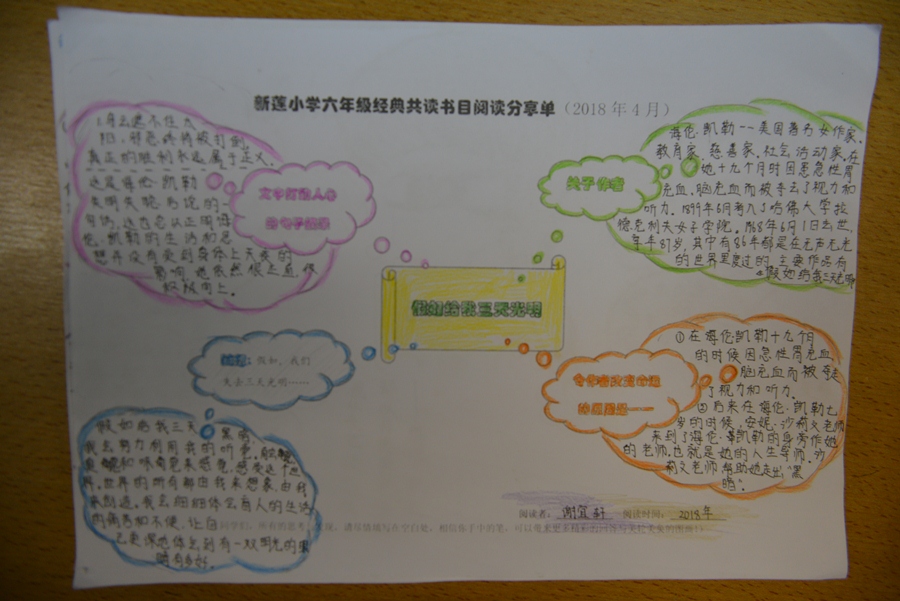 新莲小学六年级经典共读书目阅读分享单（2018年4月）
乌云遮不住太
阳，邪恶终将被打倒，
真正的胜利永远属于正义。
这是海伦·凯勒
失明失聪后说的一
句话，这也足以证明海
伦·凯勒的生活和思
想并没有受到身体上天丧的
影响，她依然很正直，很
积极向上。
文中打动人心
的句子摘录
关于作者
海伦·凯勒--美国著名女作家、
教育家、慈善家、社会活动家，在
她十九个月时因患急性胃
充血，脑充血而被夺去了视力和
听力。1899年6月考入了哈佛大学拉
德克利夫女子学院。1968年6月1日去世，
享年87岁，其中有86年都是在无声无光
的世界里度过的。主要作品有
《假如给我三天光明》
假如给我三天光明
假如，我们
失去三天光明……
令作者改变命运
的原因是……
①在海伦凯勒十九个月
的时候因急性胃充血，
脑充血而被夺走
了视力和听力。
②后来在海伦·凯勒七
岁的时候，安妮·沙莉文老师
来到了海伦·凯勒的身旁作她
的老师，也就是她的人生导师。沙
莉文老师帮助她走出“黑
暗”。
假如给我三天黑暗，
我会努力利用我的听觉，
和味觉来感觉，感受这个世
界。世界的所有都由我来想象，由我
来创造。我会细细体会盲人的生活
的痛苦和不便，让自
己更深地体会到有一双明亮的眼
睛有多好。
阅读者：谢宜轩 阅读时间：2018年
同学们，所有的思考、
请尽情挥写在空白处，相信你手中的笔，可以